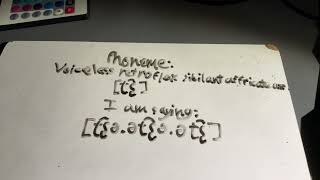 Phoneme:
Voiceless retroflex sibilant affricate
[tʂ]
I am saying:
[tʂə.ətʂə.ətʂ]